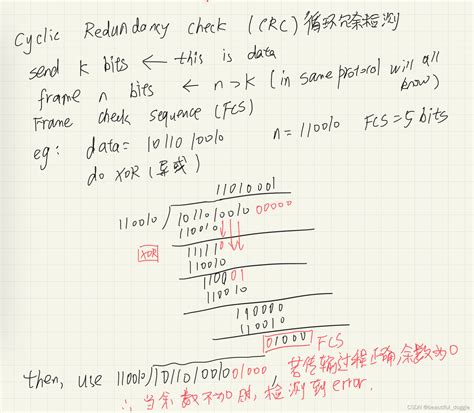 Cyclic Redundancy check (CRC) 循环冗余检测
send k bits ← this is data
frame n bits ← n>k (in same protocol will all know)
Frame check sequence (FCS)
eg: data= 101101 0010 n= 110010 FCS=5 bits
do XOR (异或)
11010001
110010 1011010010 00000
110010
XOR 111110
110010
110001
110010
110000
110010
01000 FCS
then, use 110010 101101001001000, 若传输过程正确,余数为0
∴当余数不为0时,检测到error.
CSDN @beautiful_doggie